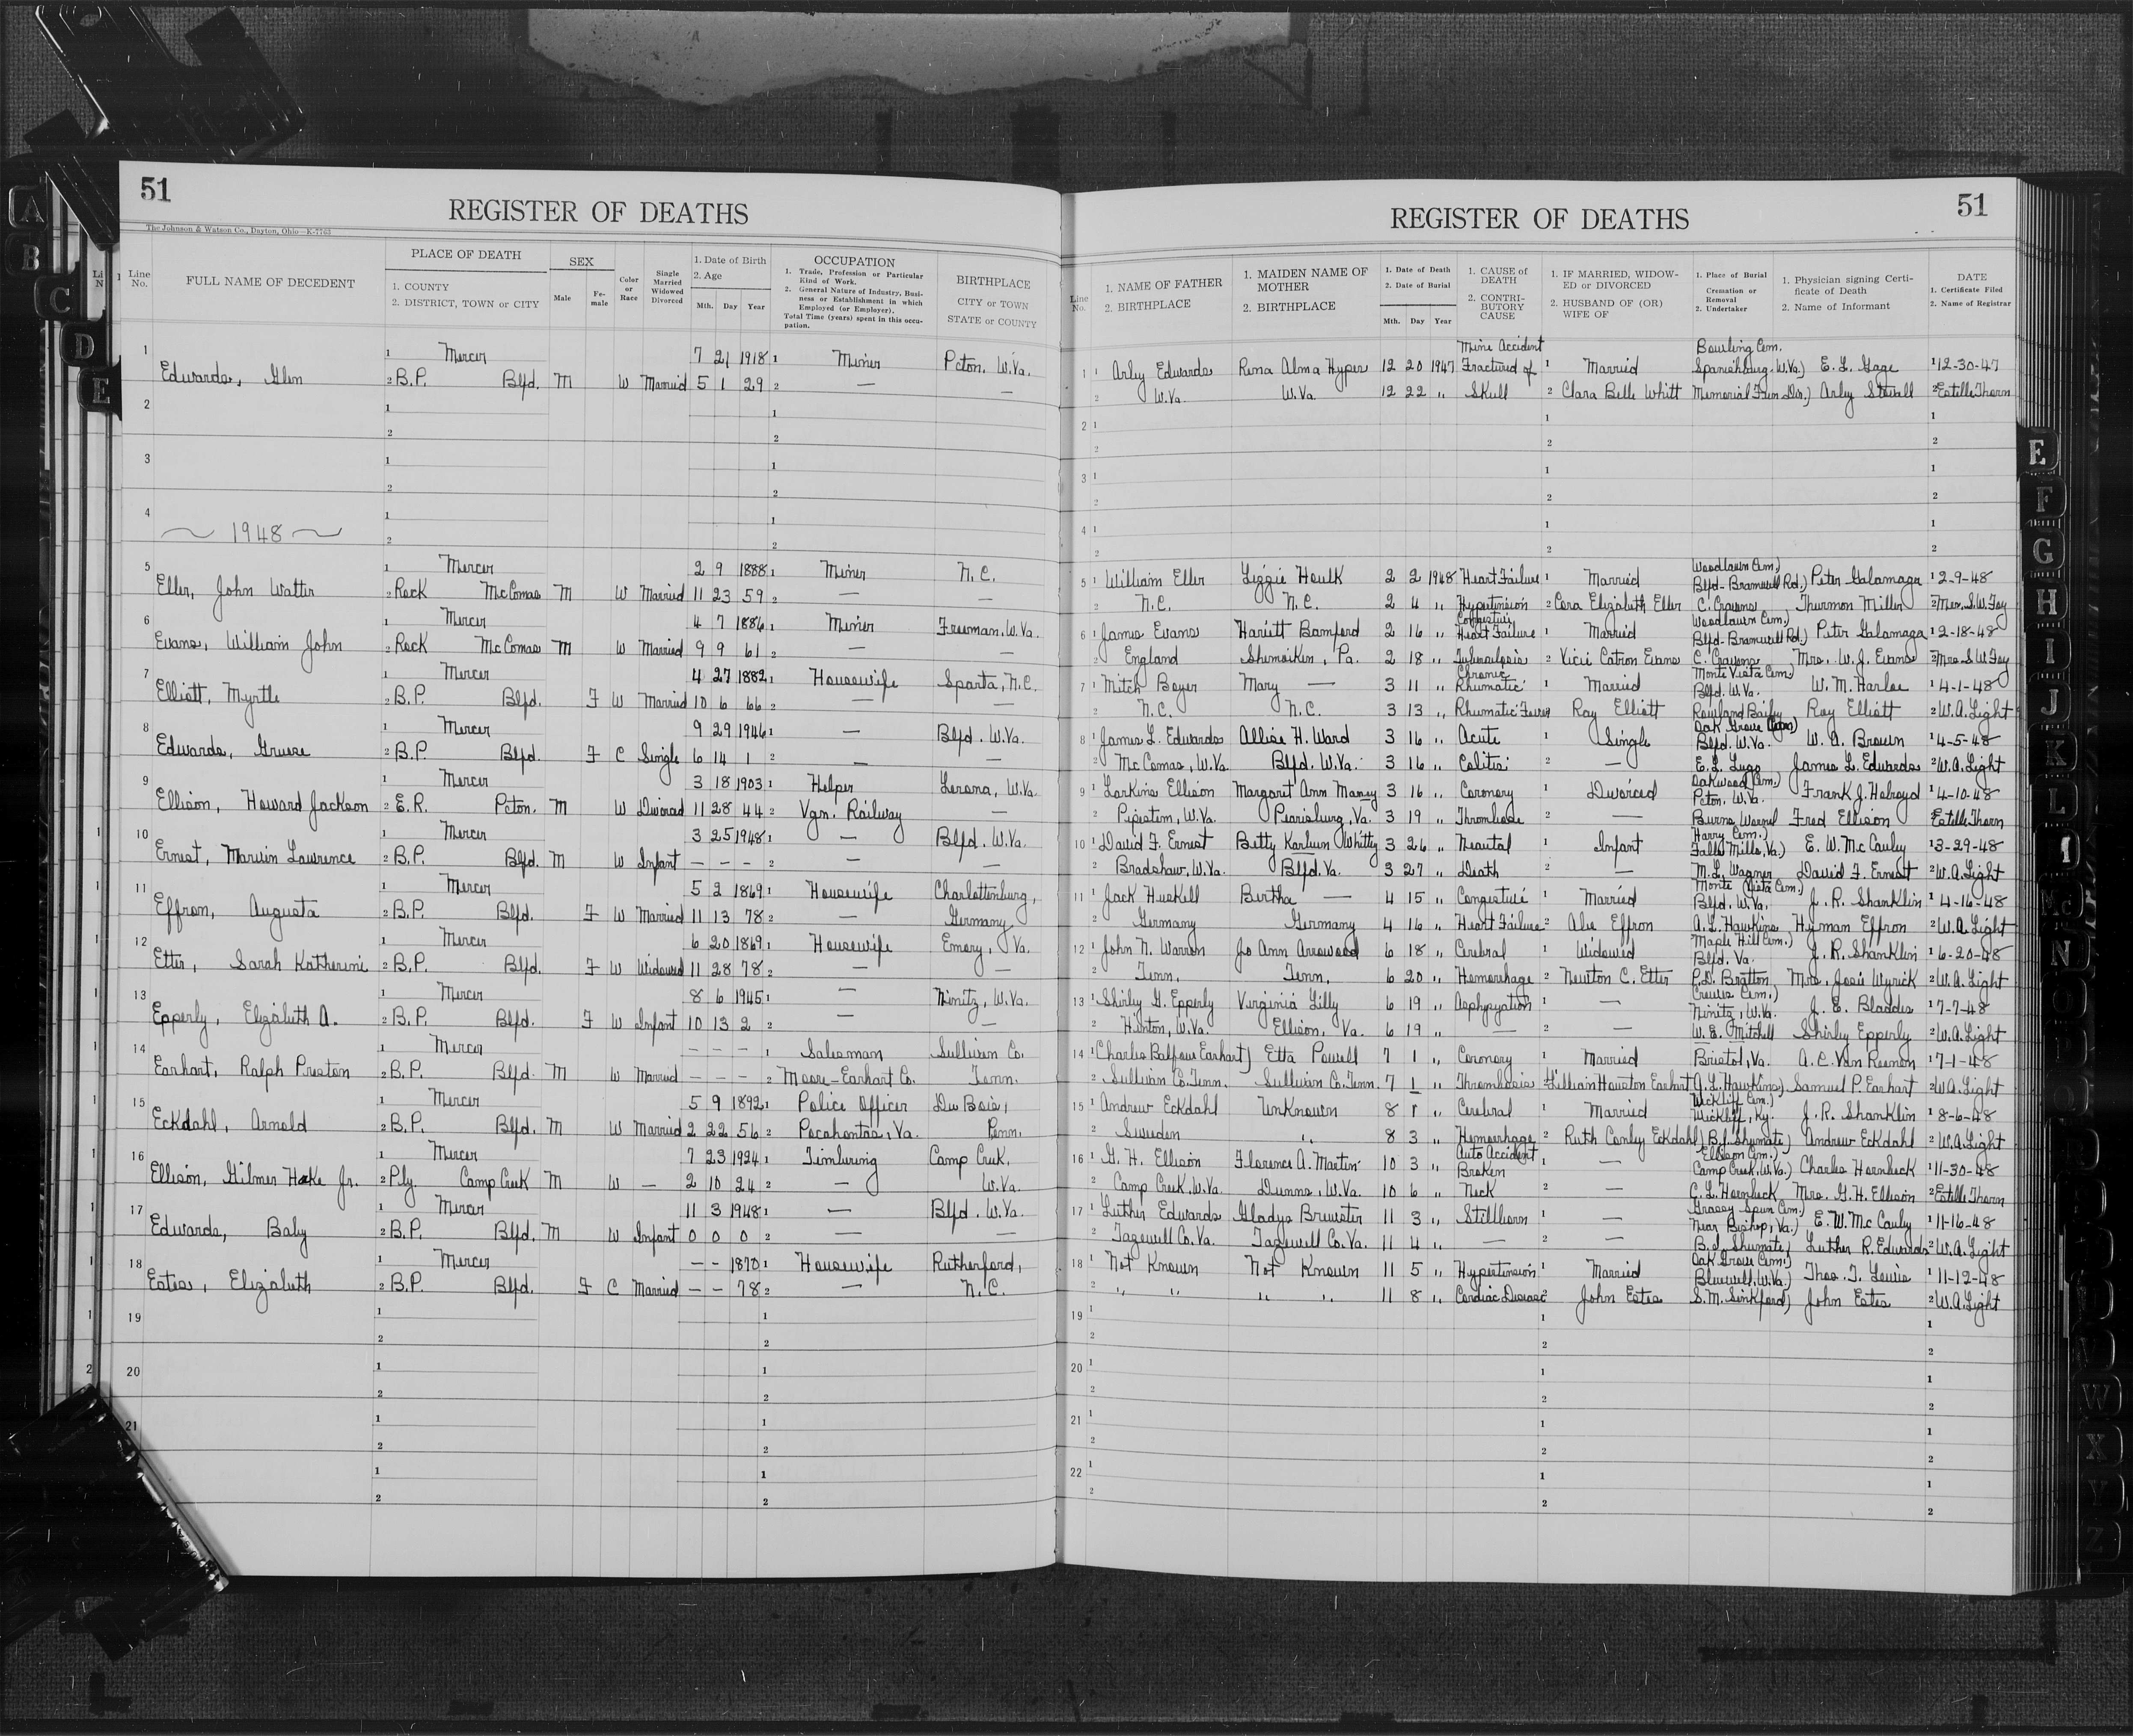 51
REGISTER OF DEATHS
The Johnson & Watson Co., Dayton, Ohio—K-7763
Line No.
FULL NAME OF DECEDENT
PLACE OF DEATH
1. COUNTY
2. DISTRICT, TOWN or CITY
SEX
Male
Female
Color or Race
Single Married Widowed Divorced
1. Date of Birth
2. Age
Mth. Day Year
OCCUPATION
1. Trade, Profession or Particular Kind of Work.
2. General Nature of Industry, Business or Establishment in which Employed (or Employer).
Total Time (years) spent in this occupation.
BIRTHPLACE
CITY or TOWN
STATE or COUNTY
1 Mercer 7 21 1918 Miner Pcton, W.Va.
Edwards, Glen B.P. Blfd. M W Married 5 1 29 —
2
3
4
~ 1948 ~
5 Mercer 2 9 1888 Miner N.C.
Eller, John Walter Rock McComas M W Married 11 23 59 —
6 Mercer 4 7 1886 Miner Freeman, W.Va.
Evans, William John Rock McComas M W Married 9 9 61 —
7 Mercer 4 27 1882 Housewife Sparta, N.C.
Elliott, Myrtle B.P. Blfd. F W Married 10 6 66 —
8 Mercer 9 29 1946 — Blfd. W.Va.
Edwards, B.P. Blfd. F C Single 6 14 1 —
9 Mercer 3 18 1903 Helper Lerona, W.Va.
Ellison, Howard Jackson E.R. Pcton. M W Divorced 11 28 44 Vgn. Railway —
10 Mercer 3 25 1948 — Blfd. W.Va.
Ernest, Marvin Lawrence B.P. Blfd. M W Infant — — — —
11 Mercer 5 2 1869 Housewife Charlottenburg,
Effron, Augusta B.P. Blfd. F W Married 11 13 78 — Germany
12 Mercer 6 20 1869 Housewife Emory, Va.
Etter, Sarah Katherine B.P. Blfd. F W Widowed 11 28 78 —
13 Mercer 8 6 1945 — Nimitz, W.Va.
Epperly, Elizabeth A. B.P. Blfd. F W Infant 10 13 2 —
14 Mercer — — — Salesman Sullivan Co.
Earhart, Ralph Preston B.P. Blfd. M W Married — — — Moore-Earhart Co. Tenn.
15 Mercer 5 9 1892 Police Officer Du Bois,
Eckdahl, Arnold B.P. Blfd. M W Married 2 22 56 Pocahontas, Va. Penn.
16 Mercer 7 23 1924 Timbering Camp Creek,
Ellison, Gilmer Hoke Jr. Ply. Camp Creek M W — 2 10 24 — W.Va.
17 Mercer 11 3 1948 — Blfd. W.Va.
Edwards, Baby B.P. Blfd. M W Infant 0 0 0 —
18 Mercer — — 1870 Housewife Rutherford,
Estes, Elizabeth B.P. Blfd. F C Married — — 78 — N.C.
19
20
21
51
REGISTER OF DEATHS
Line No.
1. NAME OF FATHER
2. BIRTHPLACE
1. MAIDEN NAME OF MOTHER
2. BIRTHPLACE
1. Date of Death
2. Date of Burial
Mth. Day Year
1. CAUSE of DEATH
2. CONTRIBUTORY CAUSE
1. IF MARRIED, WIDOWED or DIVORCED
2. HUSBAND OF (OR) WIFE OF
1. Place of Burial Cremation or Removal
2. Undertaker
1. Physician signing Certificate of Death
2. Name of Informant
DATE
1. Certificate Filed
2. Name of Registrar
Mine Accident Bowling Cem.
1 Arley Edwards Rena Alma Hyper 12 20 1947 Fractured of Married Spanishburg, W.Va.) E. L. Gage 12-30-47
W.Va. W.Va. 12 22 " Skull Clara Belle Whitt Memorial Fun. Dir.) Arley Estelle Thorn
2
3
4
Woodlawn Cem.)
5 William Eller Lizzie Houlk 2 2 1948 Heart Failure Married Blfd-Bramwell Rd.) Peter Galamaga 2-9-48
N.C. N.C. 2 4 " Hypertension Cora Elizabeth Eller C. Cravens Thurmon Miller Mrs. S.W. Fay
Congestive Woodlawn Cem.)
6 James Evans Harriett Bamford 2 16 " Heart Failure Married Blfd-Bramwell Rd.) Peter Galamaga 2-18-48
England Shemoiken, Pa. 2 18 " Vicie Catron Evans C. Cravens Mrs. W. J. Evans Mrs. S.W. Fay
Chronic Monte Vista Cem.)
7 Mitch Boyer Mary — 3 11 " Rhumatic Married Blfd. W.Va. W. M. Harloe 4-1-48
N.C. N.C. 3 13 " Rhumatic Fever Roy Elliott Rowland Bailey Roy Elliott W.A. Light
Oak Grove
8 James L. Edwards Allise H. Ward 3 16 " Acute Single Blfd. W.Va. W. A. Brown 4-5-48
McComas, W.Va. Blfd. W.Va. 3 16 " Colitis — E. L. Lugo James L. Edwards W.A. Light
Oakwood Cem.)
9 Larkins Ellison Margaret Ann Maney 3 16 " Coronary Divorced Pcton. W.Va. Frank J. Holroyd 4-10-48
Pipestem, W.Va. Pearisburg, Va. 3 19 " Thrombosis — Burns, Fred Ellison Estelle Thorn
Harry Cem.)
10 David F. Ernest Betty Karleen Whittey 3 26 " Neautal Infant Falls Mills, Va.) E. W. McCauley 3-29-48
Bradshaw, W.Va. Blfd. Va. 3 27 " Death — M. L. Wagner David F. Ernest W.A. Light
Monte Vista Cem.)
11 Jack Huskell Bertha — 4 15 " Congestive Married Blfd. W.Va. J. R. Shanklin 4-16-48
Germany Germany 4 16 " Heart Failure Abe Effron A. L. Hawkins Hyman Effron W.A. Light
Maple Hill Cem.)
12 John N. Warren Jo Ann Arrowood 6 18 " Cerebral Widowed Blfd. Va. J. R. Shanklin 6-20-48
Tenn. Tenn. 6 20 " Hemorrhage Newton C. Etter P.D. Bratton Mrs. Josie Wyrick W.A. Light
Cem.)
13 Shirley G. Epperly Virginia Lilly 6 19 " Asphyxiation — Nimitz, W.Va. J. E. Bladdis 7-7-48
Hinton, W.Va. Ellison, Va. 6 19 " — — W. E. Mitchell Shirley Epperly W.A. Light
14 Charles Balfour Earhart) Etta Powell 7 1 " Coronary Married Bristol, Va. A. C. Van Reenen 7-1-48
Sullivan Co. Tenn. Sullivan Co. Tenn. 7 1 " Thrombosis Lillian Houston Earhart A. L. Hawkins) Samuel P. Earhart W.A. Light
Wickliff Cem.)
15 Andrew Eckdahl Unknown 8 1 " Cerebral Married Wickliff, Ky. J. R. Shanklin 8-6-48
Sweden " 8 3 " Hemorrhage Ruth Conley Eckdahl) B.J. Shumate) Andrew Eckdahl W.A. Light
Auto Accident Ellison Cem.)
16 G. H. Ellison Florence A. Martin 10 3 " Broken — Camp Creek, W.Va.) Charles Hornbeck 11-30-48
Camp Creek, W.Va. Dunns, W.Va. 10 6 " Neck — C. L. Hornbeck Mrs. G. H. Ellison Estelle Thorn
Grassy Spur Cem.)
17 Luther Edwards Gladys Brewster 11 3 " Stillborn — Near Bishop, Va.) E. W. McCauly 11-16-48
Tazewell Co. Va. Tazewell Co. Va. 11 4 " — — B. J. Shumate Luther R. Edwards W.A. Light
Oak Grove Cem.)
18 Not Known Not Known 11 5 " Hypertension Married Bluewell, W.Va.) Thos. T. Lewis 11-12-48
" " " " 11 8 " Cardiac Disease John Estes S.M. Sinkford) John Estes W.A. Light
19
20
21
22
A
B
C
D
E
E
F
G
H
I
J
K
L
Mc
N
O
P
R
W
X
Y
Z